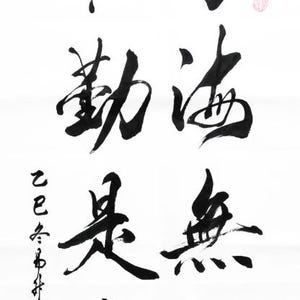 海無
勤是
乙巳冬易